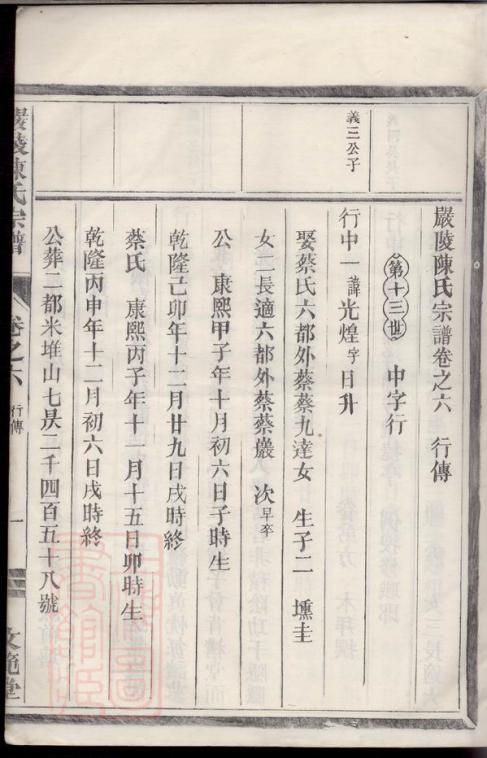 嚴陵陳氏宗譜卷之六　行傳
第十三世　中字行
義三公子
行中一諱光煌字日升
娶蔡氏六都外蔡蔡九達女　生子二　壎圭
女二長適六都外蔡蔡巖　次早卒
公　康熙甲子年十月初六日子時生
乾隆己卯年十二月廿九日戌時終
蔡氏　康熙丙子年十一月十五日卯時生
乾隆丙申年十二月初六日戌時終
公葬二都米堆山七昃二千四百五十八號
嚴陵陳氏宗譜
卷之六　行傳
一
文範堂